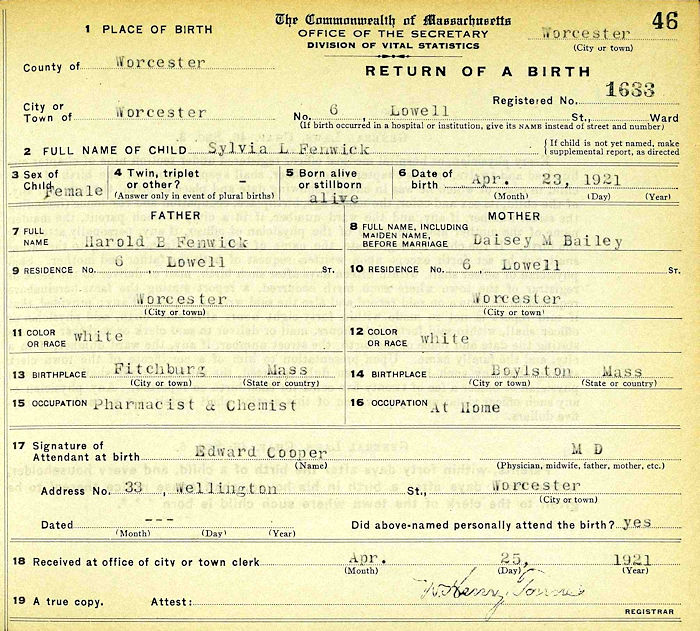 46
1 PLACE OF BIRTH
The Commonwealth of Massachusetts
OFFICE OF THE SECRETARY
DIVISION OF VITAL STATISTICS
Worcester
(City or town)
County of Worcester
RETURN OF A BIRTH
Registered No. 1633
City or Town of Worcester No. 6, Lowell St., Ward
(If birth occurred in a hospital or institution, give its NAME instead of street and number)
2 FULL NAME OF CHILD Sylvia L Fenwick
{ If child is not yet named, make supplemental report, as directed
3 Sex of Child Female
4 Twin, triplet or other? -
(Answer only in event of plural births)
5 Born alive or stillborn alive
6 Date of birth Apr. 23, 1921
(Month) (Day) (Year)
FATHER
MOTHER
7 FULL NAME Harold B Fenwick
8 FULL NAME, INCLUDING MAIDEN NAME, BEFORE MARRIAGE Daisey M Bailey
9 RESIDENCE No. 6, Lowell ST.
10 RESIDENCE No. 6, Lowell ST.
Worcester
Worcester
(City or town)
(City or town)
11 COLOR OR RACE white
12 COLOR OR RACE white
13 BIRTHPLACE Fitchburg Mass
(City or town) (State or country)
14 BIRTHPLACE Boylston Mass
(City or town) (State or country)
15 OCCUPATION Pharmacist & Chemist
16 OCCUPATION At Home
17 Signature of Attendant at birth Edward Cooper M D
(Name) (Physician, midwife, father, mother, etc.)
Address No. 33, Wellington St., Worcester
(City or town)
Dated ---
(Month) (Day) (Year)
Did above-named personally attend the birth? yes
18 Received at office of city or town clerk Apr. 25, 1921
(Month) (Day) (Year)
19 A true copy. Attest: Henry
REGISTRAR